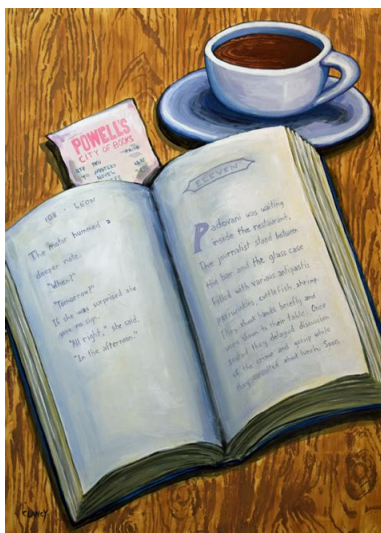 POWELL'S
CITY OF BOOKS
108 · LEON
The motor hummed a
deeper note.
"When?"
"Tomorrow?"
If she was surprised she
gave no sign.
"All right," she said.
"In the afternoon."
ELEVEN
Padovani was waiting
inside the restaurant.
The journalist stood between
the bar and the glass case
filled with various antipasti:
periwinkles, cuttlefish, shrimp.
They shook hands briefly and
were shown to their table. Once
seated they delayed discussion
of the crime and gossip while
they consulted about lunch. Soon,
CLANCY